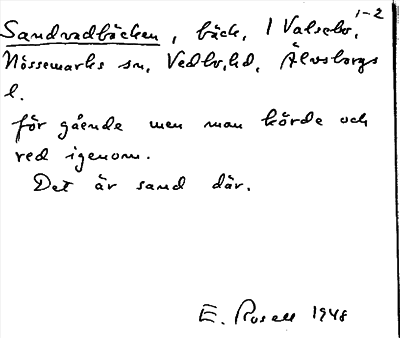 Sandvadbäcken, bäck, 1 Valsebo, 1-2
Nössemarks sn, Vedbo hd, Älvsborgs
l.
för gående men man körde och
red igenom.
Det är sand där.
E. Rosell 1948